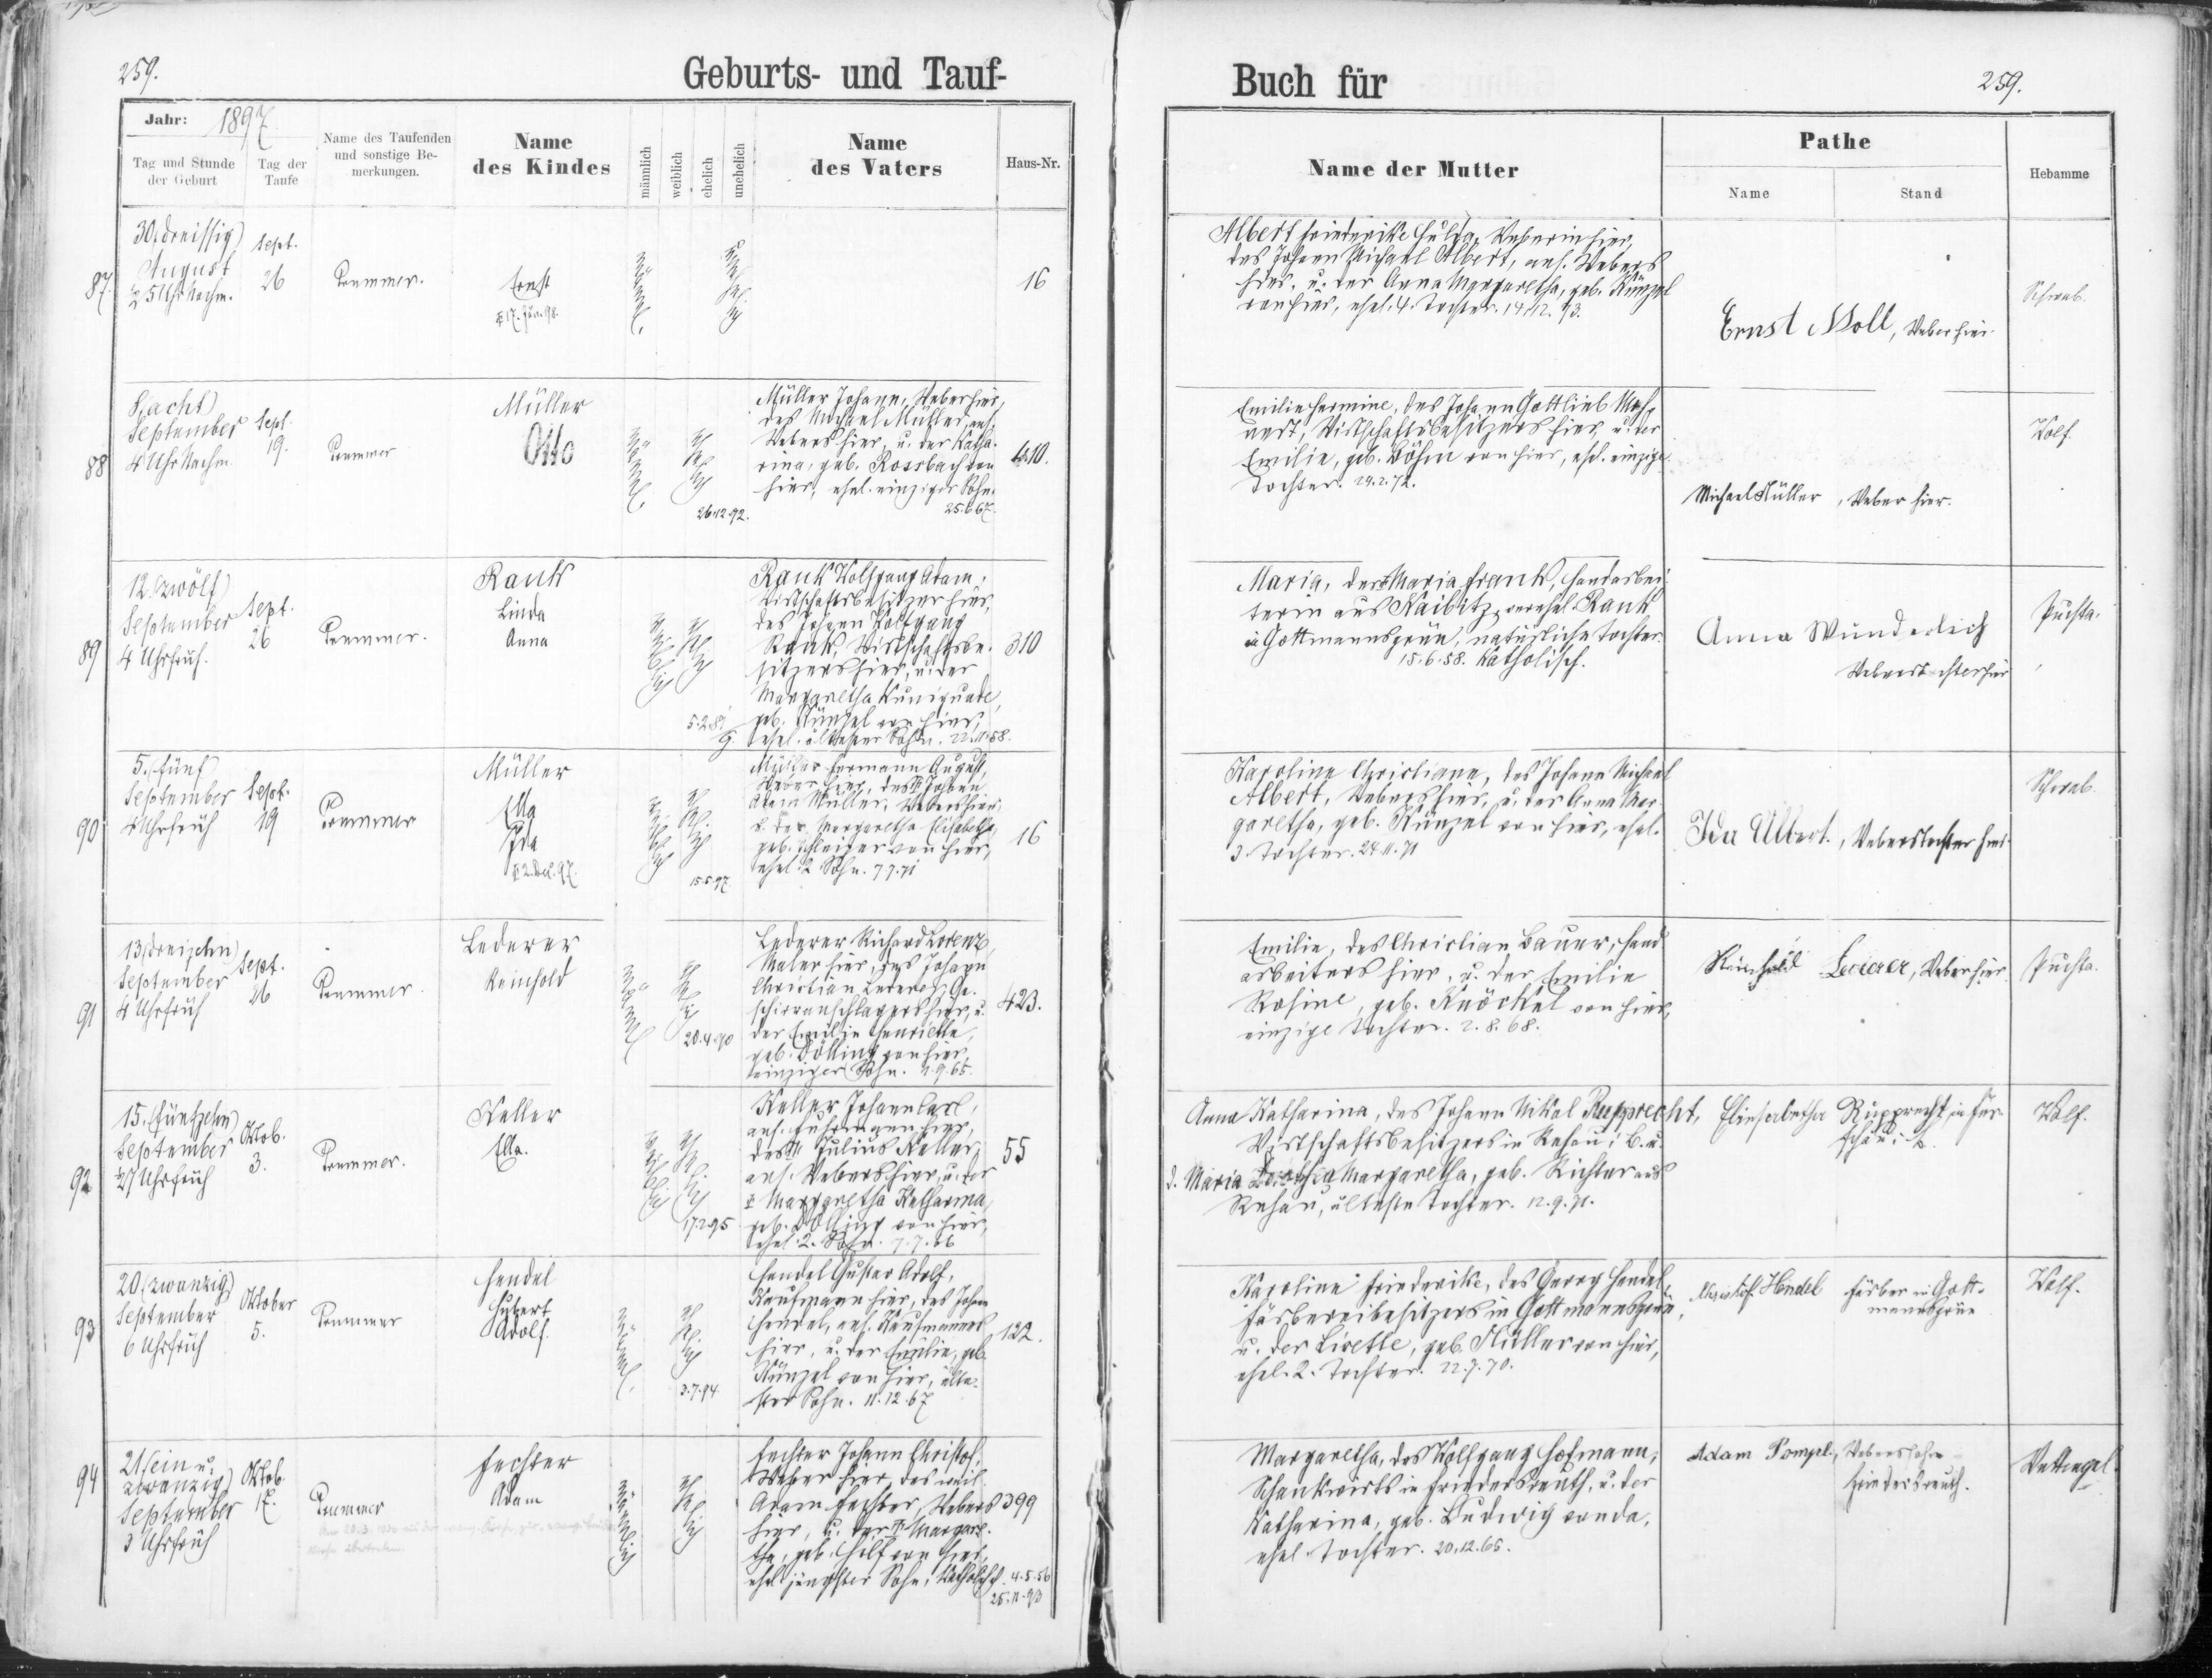 259.
Geburts- und Tauf-
Buch für
259.
Jahr: 1897
Tag und Stunde
der Geburt
Tag der
Taufe
Name des Taufenden
und sonstige Be-
merkungen.
Name
des Kindes
männlich
weiblich
ehelich
unehelich
Name
des Vaters
Haus-Nr.
Name der Mutter
Pathe
Name
Stand
Hebamme
87.
30 (dreissig)
August
½ 5 Uhr Nachm.
Sept.
26
Trummer.
Ernst
17. Jan. 98.
männl.
unehelich
16
Albert Friederike Hulda, Weberin hier,
des Johann Michael Albert, ans. Webers
hier, u. der Anna Margaretha, geb. Künzel
von hier, ehel. 4. Tochter. 14.12.73.
Ernst Noll, Weber hier.
Schwab.
88
8 (acht)
September
4 Uhr Nachm.
Sept.
19.
Trummer
Müller
Otto
männl.
ehelich
26.12.92.
Müller Johann, Weber hier,
des Michael Müller, ans.
Webers hier, u. der Katha-
rina, geb. Rossbach von
hier, ehel. einziger Sohn.
25.6.67.
410.
Emilie Hermine, des Johann Gottlieb
Wirtschaftsbesitzers hier, u. der
Emilie, geb. Böhm von hier, ehel. einzige
Tochter. 29.2.72.
Michael Müller, Weber hier.
Wolf.
89
12. (zwölf)
September
4 Uhr früh.
Sept.
26
Trummer.
Rank
Linda
Anna
weiblich
ehelich
5.2.81
Rank Wolfgang Adam,
Wirtschaftsbesitzer hier,
des Johann Wolfgang
Rank, Wirtschaftsbe-
sitzers hier, u. der
Margaretha Kunigunde,
geb. Künzel von hier,
ehel. ältester Sohn. 22.11.58.
310
Maria, der Maria Frank, Handarbei-
terin aus Kaibitz, verehel. Rank
in Gottmannsgrün, natürliche Tochter.
15.6.58. Katholisch.
Anna Wunderlich
Weberstochter hier
Puchta.
90
5. (fünf)
September
4 Uhr früh
Sept.
19
Trummer
Müller
Ella
Ida
2. Dez. 97.
weiblich
ehelich
15.5.97.
Müller Hermann August,
Weber hier, des Johann
Adam Müller, Webers hier,
u. der Margaretha Elisabetha,
geb. von hier,
ehel. 2. Sohn. 7.7.71
16
Karoline Christiane, des Johann Michael
Albert, Webers hier, u. der Anna Mar-
garetha, geb. Künzel von hier, ehel.
3. Tochter. 24.11.71
Ida Albert., Weberstochter hier.
Schwab.
91
13 (dreizehn)
September
4 Uhr früh
Sept.
26
Trummer.
Lederer
Reinhold
männl.
ehelich
20.4.90
Lederer Richard Lorenz,
Maler hier, des Johann
Christian Lederer, Ge-
schirranschlagers hier, u.
der Emilie Henriette,
geb. Dölling von hier,
einziger Sohn. 11.9.65.
423.
Emilie, des Christian Bauer, Hand-
arbeiters hier, u. der Emilie
Rosine, geb. Knöckel von hier,
einzige Tochter. 2.8.68.
Reinhold Lederer, Weber hier.
Puchta.
92
15. (fünfzehn)
September
½7 Uhr früh
Oktob.
3.
Trummer.
Keller
Ella.
weiblich
ehelich
17.2.95
Keller Johann Carl,
ans. hier,
des Julius Keller,
ans. Webers hier, u. der
Margaretha Katharina,
geb. Dölling von hier,
ehel. 2. Sohn. 7.7.66
55
Anna Katharina, des Johann Nikol Rupprecht,
Wirtschaftsbesitzers in Rehau i. B. u.
d. Maria Dorothea Margaretha, geb. Richter aus
Rehau, älteste Tochter. 12.9.71.
Elisabetha Rupprecht in
Wolf.
93
20 (zwanzig)
September
6 Uhr früh
Oktober
5.
Trummer
Hendel
Hubert
Adolf.
männl.
ehelich
3.7.94
Hendel Gustav Adolf,
Kaufmann hier, des Johann
Hendel, ans. Kaufmanns
hier, u. der Emilie, geb.
Künzel von hier, älte-
ster Sohn. 11.12.67
122.
Karoline Friederike, des Georg Hendel,
Färbereibesitzers in Gottmannsgrün,
u. der Lisette, geb. Müller von hier,
ehel. 2. Tochter. 22.7.70.
Christof Hendel
Färber in Gott-
mannsgrün
Wolf.
94
21 (ein u.
zwanzig)
September
3 Uhr früh
Oktob.
17.
Trummer
Fechter
Adam
männlich
ehelich
Fechter Johann Christof,
Weber hier, des weil.
Adam Fechter, Webers
hier, u. der Margare-
tha, geb. Wolf von hier,
ehel. jüngster Sohn, Katholisch. 4.5.56
25.11.93
399
Margaretha, des Wolfgang Hofmann,
Schankwirts in Friedersreuth, u. der
Katharina, geb. Ludwig von da,
ehel. Tochter. 20.12.65.
Adam Pompel, Weberssohn
Friedersreuth.
Wettengel.